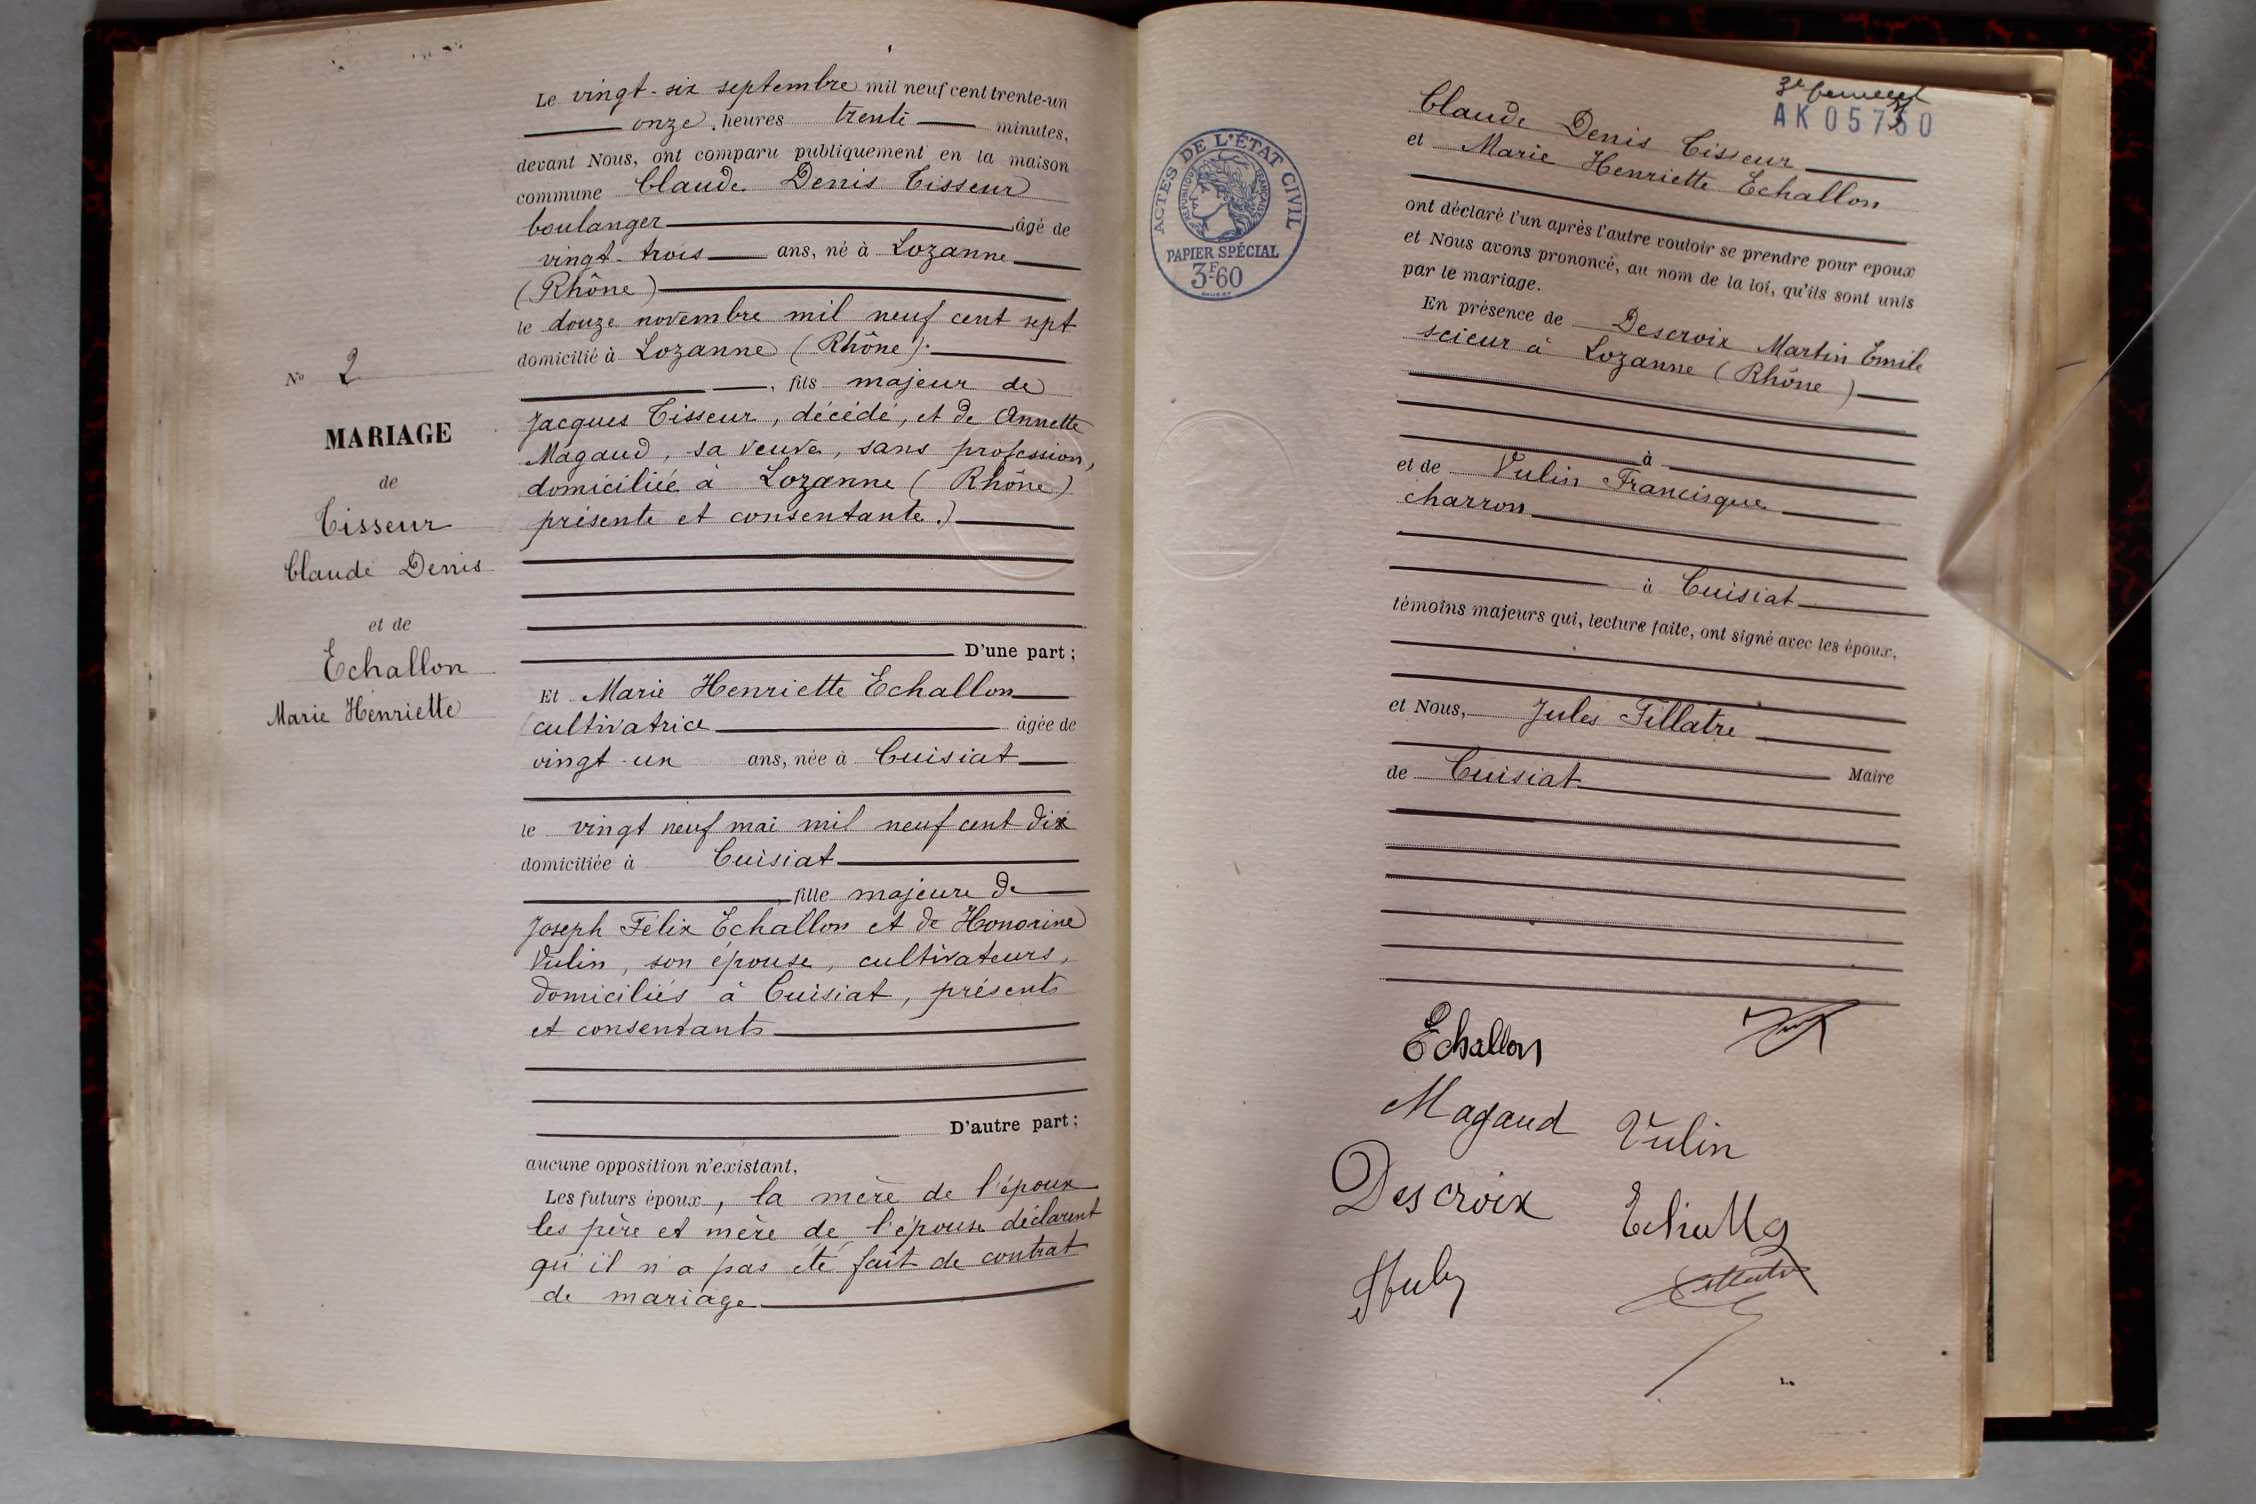 N° 2
MARIAGE
de
Tisseur
Claude Denis
et de
Echallon
Marie Henriette
Le vingt-six septembre mil neuf cent trente-un
onze heures trente minutes,
devant Nous, ont comparu publiquement en la maison
commune Claude Denis Tisseur
boulanger âgé de
vingt-trois ans, né à Lozanne
(Rhône)
le douze novembre mil neuf cent sept
domicilié à Lozanne (Rhône).
, fils majeur de
Jacques Tisseur, décédé, et de Annette
Magaud, sa veuve, sans profession,
domiciliée à Lozanne (Rhône)
présente et consentante.)
D'une part ;
Et Marie Henriette Echallon
cultivatrice âgée de
vingt-un ans, née à Cuisiat
le vingt neuf mai mil neuf cent dix
domiciliée à Cuisiat
, fille majeure de
Joseph Félix Echallon et de Honorine
Vulin, son épouse, cultivateurs,
domiciliés à Cuisiat, présents
et consentants
D'autre part ;
aucune opposition n'existant,
Les futurs époux, la mère de l'époux
les père et mère de l'épouse déclarent
qu'il n'a pas été fait de contrat
de mariage
AK 05750
ACTES DE L'ÉTAT CIVIL
RÉPUBLIQUE FRANÇAISE
PAPIER SPÉCIAL
3F60
Claude Denis Tisseur
et Marie Henriette Echallon
ont déclaré l'un après l'autre vouloir se prendre pour époux
et Nous avons prononcé, au nom de la loi, qu'ils sont unis
par le mariage.
En présence de Descroix Martin Emile
scieur à Lozanne (Rhône)
à
et de Vulin Francisque
charron
à Cuisiat
témoins majeurs qui, lecture faite, ont signé avec les époux,
et Nous, Jules Fillatre
Maire
de Cuisiat
Echallon
Magaud Vulin
Descroix